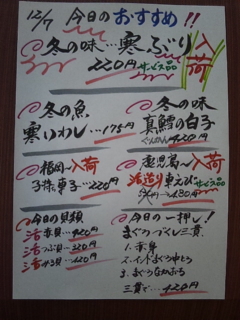 12/7 今日のおすすめ!!
冬の味…寒ぶり入荷
220円 サービス品
冬の魚
寒いわし…175円
冬の味
真鱈の白子
ぐんかん 420円
福岡〜入荷
子持ち車子…220円
鹿児島〜入荷
活造り車えび サービス品
今日の貝類
活赤貝…420円
活つぶ貝…320円
活みる貝…420円
今日の一押し!
まぐろづくし三貫
1.赤身
2.インドまぐろ中とろ
3.
三貫で…420円